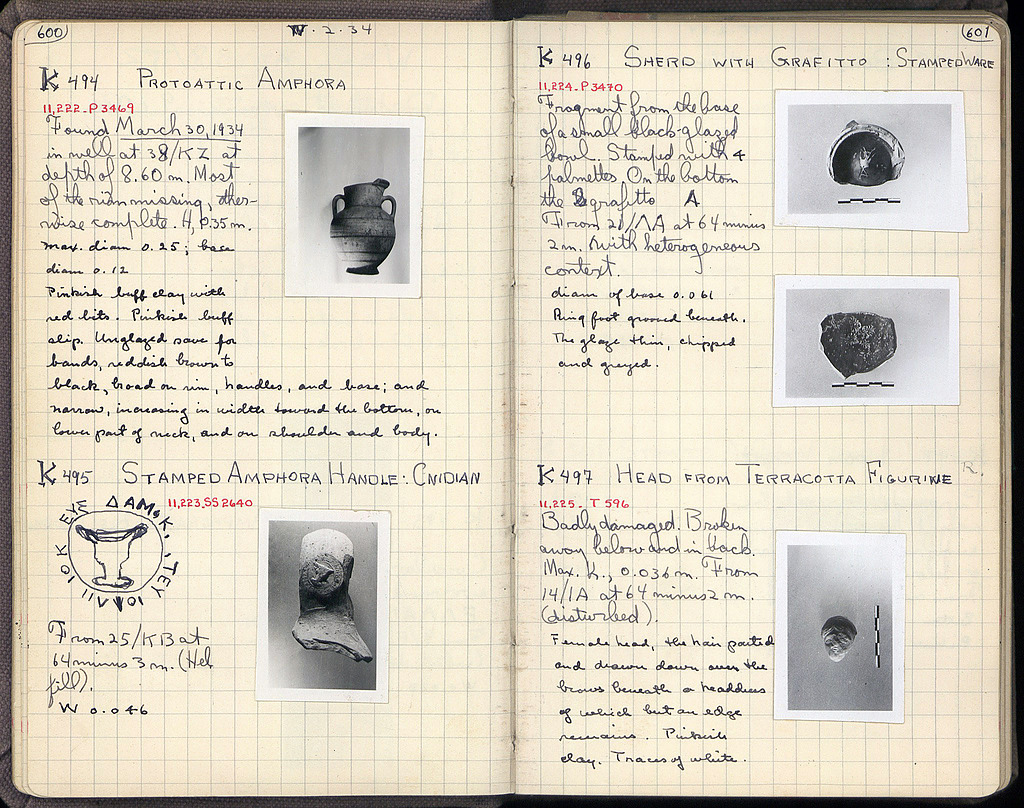 600
W. 2. 34
K 494 PROTOATTIC AMPHORA
11,222. P 3469
Found March 30, 1934
in well at 38/KZ at
depth of 8.60 m. Most
of the rim missing, other-
wise complete. H, 0.35 m.
max. diam 0.25; base
diam 0.12
Pinkish buff clay with
red bits. Pinkish buff
slip. Unglazed save for
bands, reddish brown to
black, broad on rim, handles, and base; and
narrow, increasing in width toward the bottom, on
lower part of neck, and on shoulder and body.
K 495 STAMPED AMPHORA HANDLE: CNIDIAN
11,223. SS 2640
From 25/KB at
64 minus 3 m. (Hel.
fill).
W 0.046
601
K 496 SHERD WITH GRAFITTO : STAMPED WARE
11,224. P 3470
Fragment from the base
of a small black-glazed
bowl. Stamped with 4
palmettes. On the bottom
the grafitto A
From 21/ΛΑ at 64 minus
2 m. with heterogeneous
context.
diam of base 0.061
Ring foot grooved beneath.
The glaze thin, chipped
and greyed.
K 497 HEAD FROM TERRACOTTA FIGURINE R.
11,225. T 596
Badly damaged. Broken
away below and in back.
Max. H., 0.036 m. From
14/ΙΑ at 64 minus 2 m.
(disturbed).
Female head, the hair parted
and drawn down over the
brows beneath a headdress
of which but an edge
remains. Pinkish
clay. Traces of white.